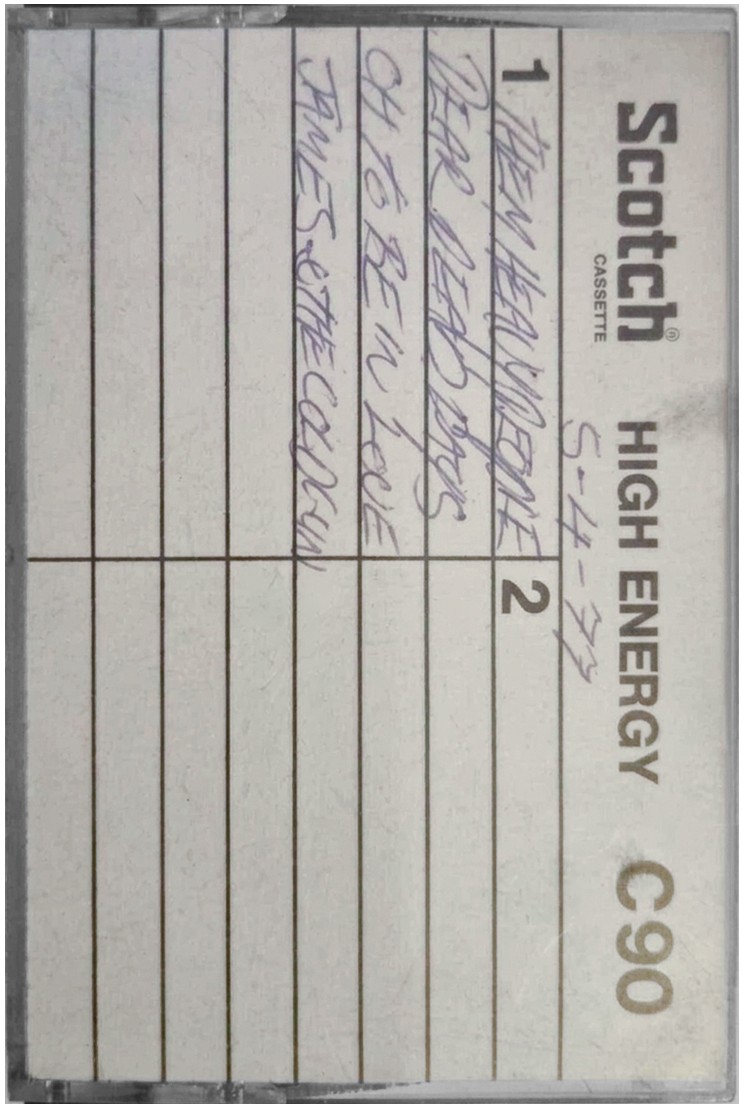 Scotch®
CASSETTE
HIGH ENERGY C90
5-4-77
1 THEM HEAVY PEOPLE
DEAR DEAD DAYS
OH TO BE IN LOVE
JAMES & THE COLD GUN
2